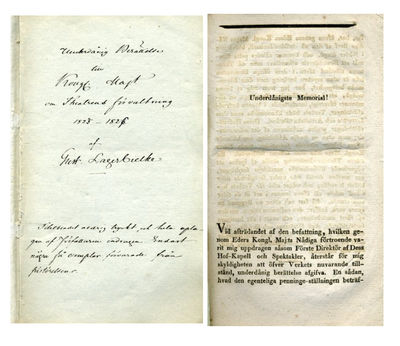 Underdånig Berättelse
till
Kongl. Majt
om Theaterns förvaltning
1823 - 1826
af
Gust. Lagerbielke
några få exemplar
Underdånigste Memorial!
Vid afträdandet af den befattning, hvilken ge-
nom Eders Kongl. Majts Nådiga förtroende va-
rit mig uppdragen såsom Förste Direktör af Dess
Hof-Kapell och Spektakler, återstår för mig
skyldigheten att öfver Verkets nuvarande till-
stånd, underdånig berättelse afgifva. En sådan,
hvad den egenteliga penninge-ställningen beträf-